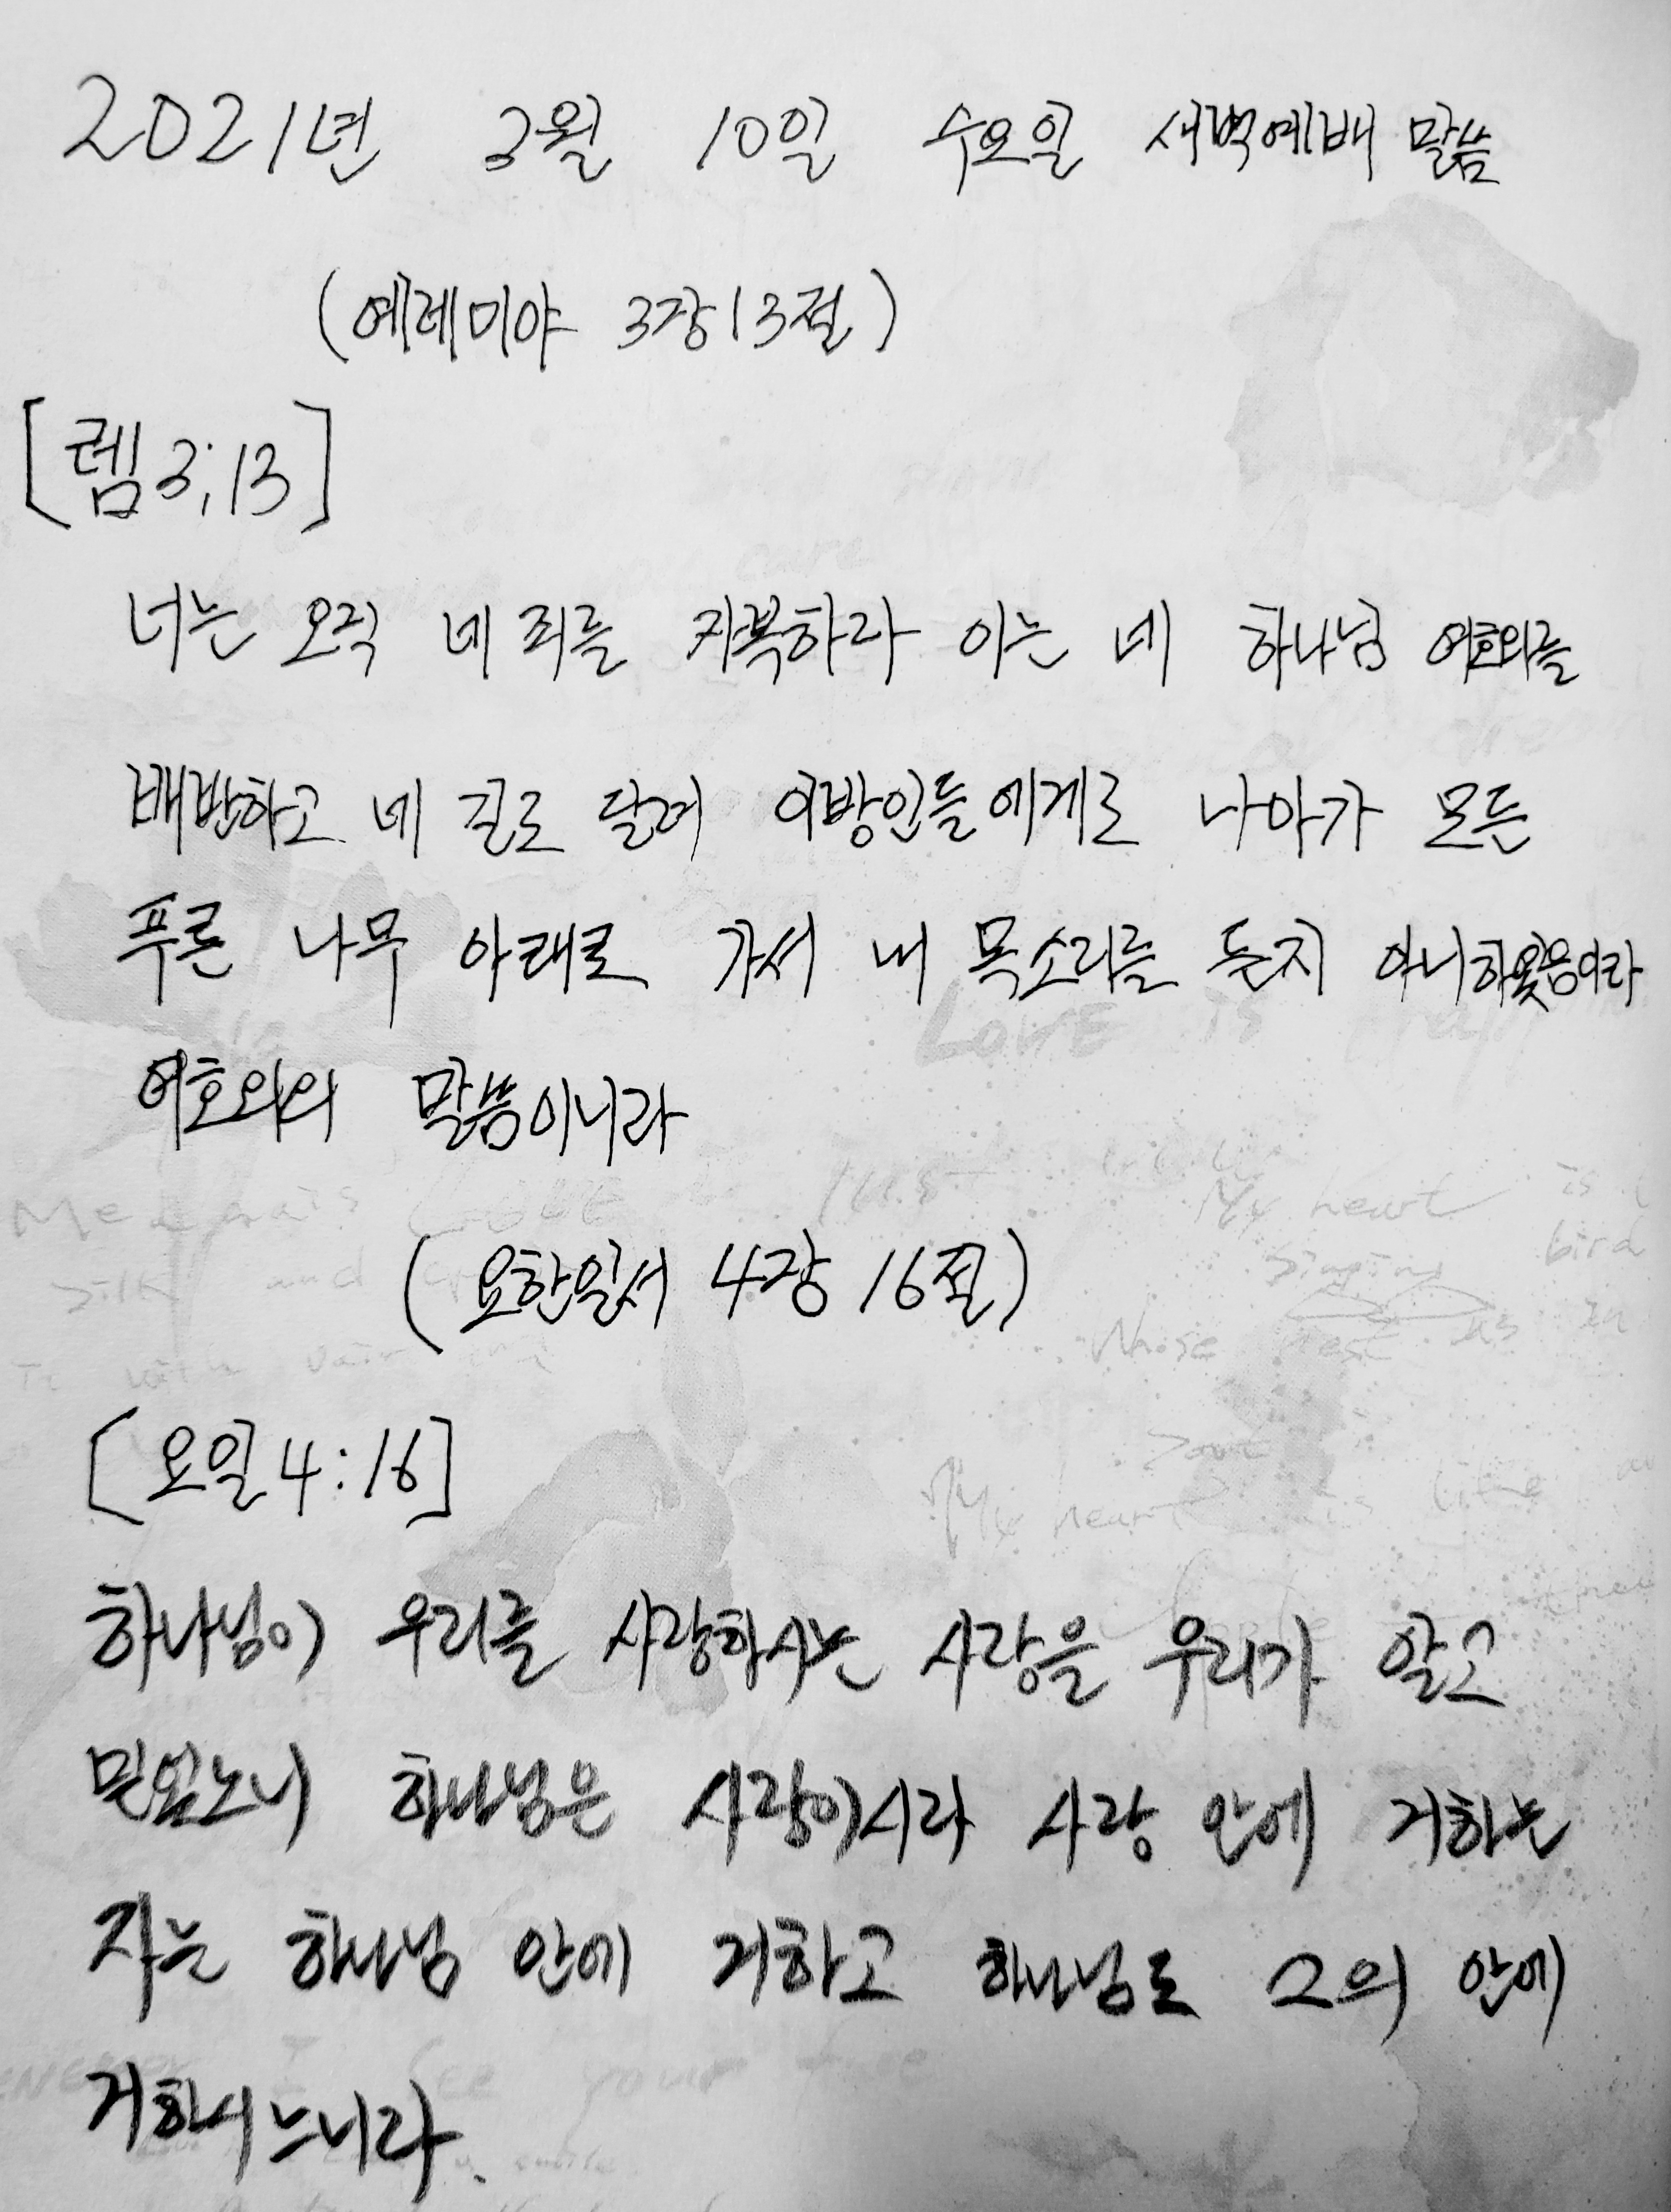 2021년 3월 10일 수요일 새벽예배 말씀
(예레미야 3장 13절)
[렘 3;13]
너는 오직 네 죄를 자복하라 이는 네 하나님 여호와를
배반하고 네 길로 달려 이방인들에게로 나아가 모든
푸른 나무 아래로 가서 내 목소리를 듣지 아니하였음이라
여호와의 말씀이니라
(요한일서 4장 16절)
[요일 4:16]
하나님이 우리를 사랑하시는 사랑을 우리가 알고
믿었노니 하나님은 사랑이시라 사랑 안에 거하는
자는 하나님 안에 거하고 하나님도 그의 안에
거하시느니라.
LOVE is
My heart is
bird
singing
My heart is like
see your face